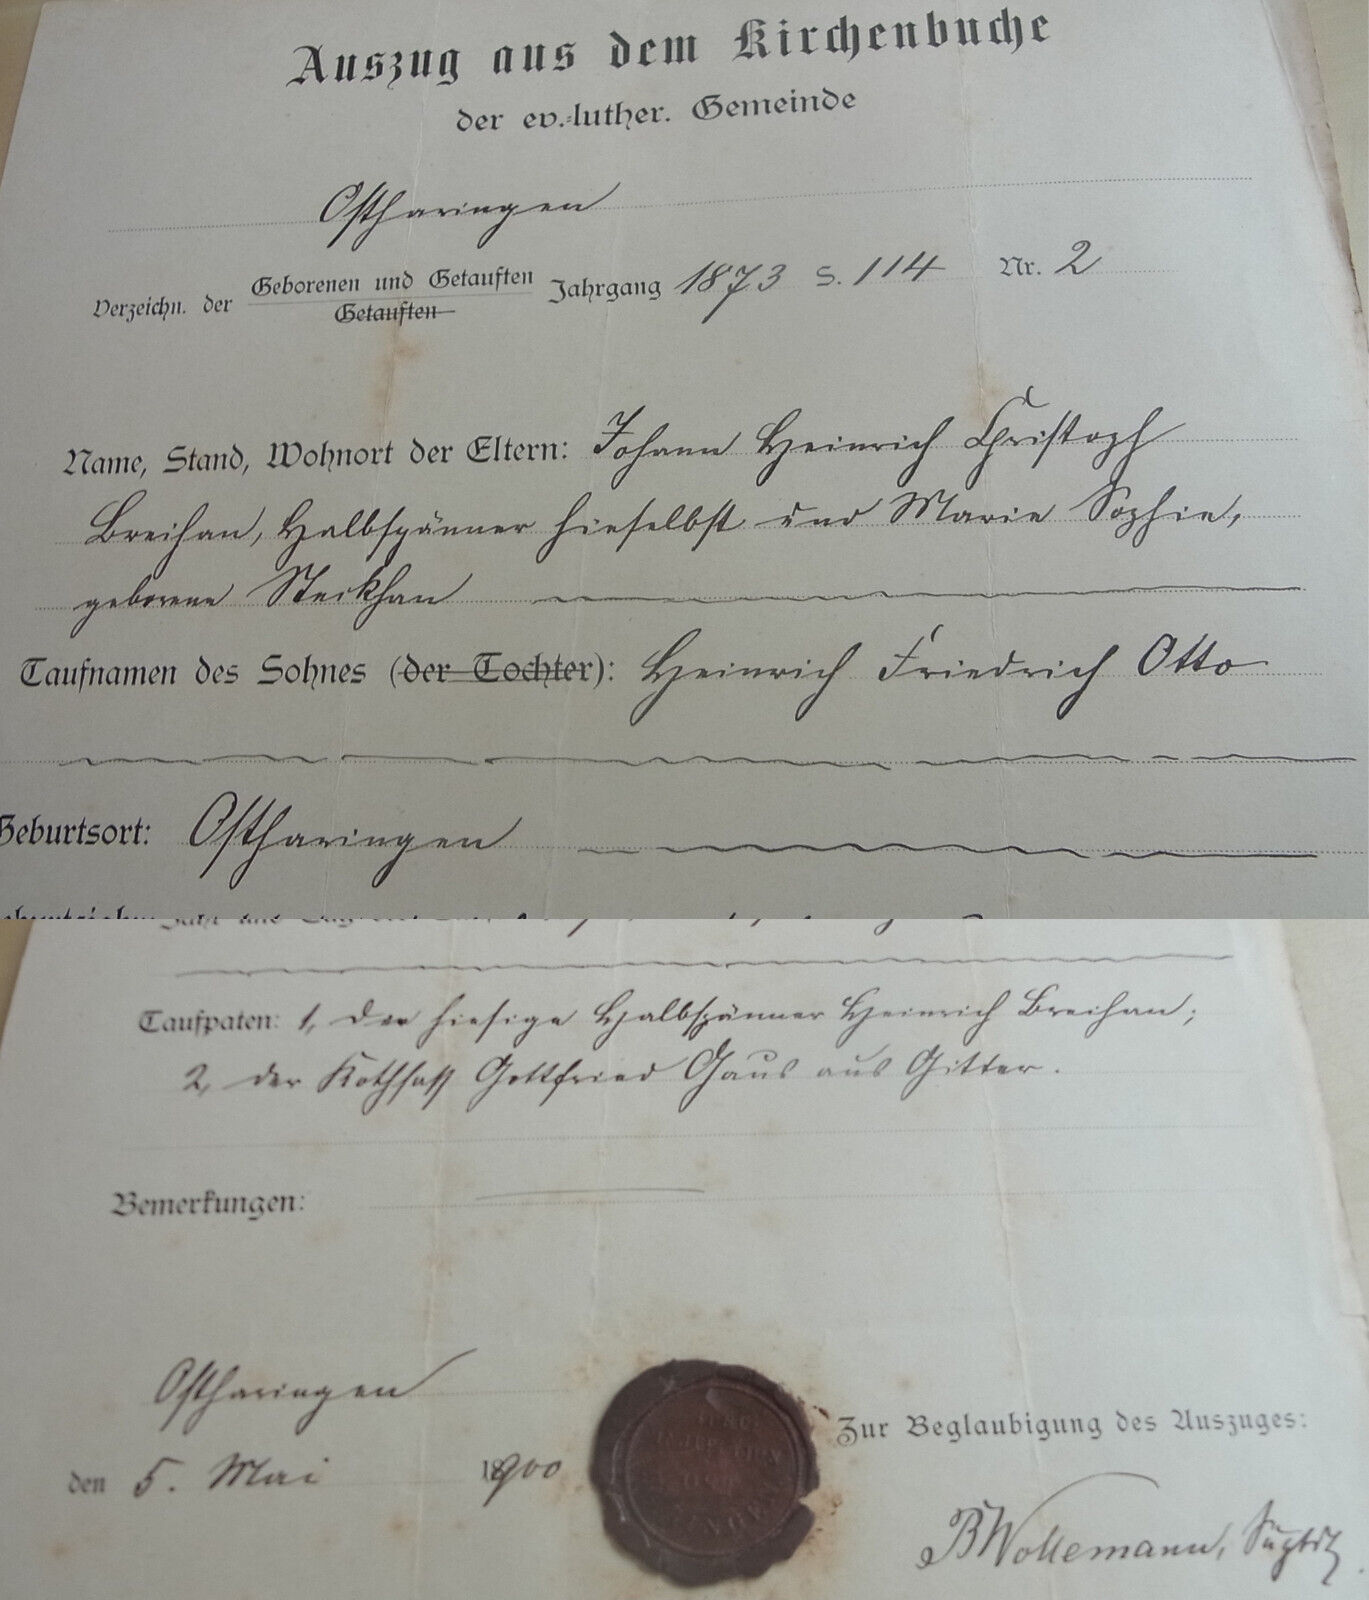 Auszug aus dem Kirchenbuche
der ev.-luther. Gemeinde
Ostharingen
Verzeichn. der Geborenen und Getauften Jahrgang 1873 S. 114 Nr. 2
Getauften
Name, Stand, Wohnort der Eltern: Johann Heinrich Christoph
Breihan, Halbspänner hieselbst und Marie Sophie,
geborene Steikhan
Taufnamen des Sohnes (der Tochter): Heinrich Friedrich Otto
Geburtsort: Ostharingen
Taufpaten: 1, Der hiesige Halbspänner Heinrich Breihan;
2, der Kothsass Gottfried Gaus aus Gitter.
Bemerkungen:
Ostharingen
den 5. Mai 1900
Zur Beglaubigung des Auszuges:
B Wollemann,